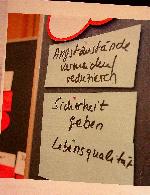 Angstzustände
vermeiden/
reduzieren
Sicherheit
geben
Lebensqualität